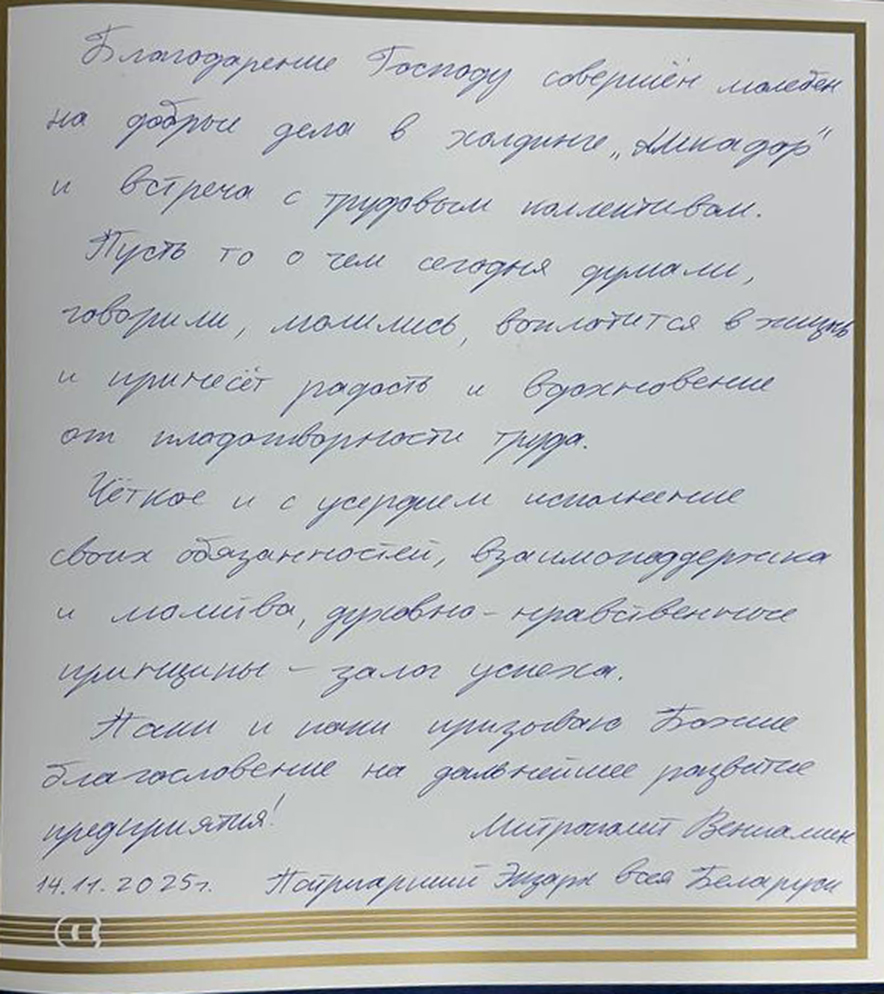 Благодарение Господу совершён молебен
на добрые дела в холдинге „Амкадор"
и встреча с трудовым коллективом.
Пусть то о чем сегодня думали,
говорили, молились, воплотится в жизнь
и принесёт радость и вдохновение
от плодотворности труда.
Чёткое и с усердием исполнение
своих обязанностей, взаимоподдержка
и молитва, духовно-нравственные
принципы – залог успеха.
Паки и паки призываю Божие
благословение на дальнейшее развитие
предприятия!
Митрополит Вениамин
14.11.2025г. Патриарший Экзарх всея Беларуси